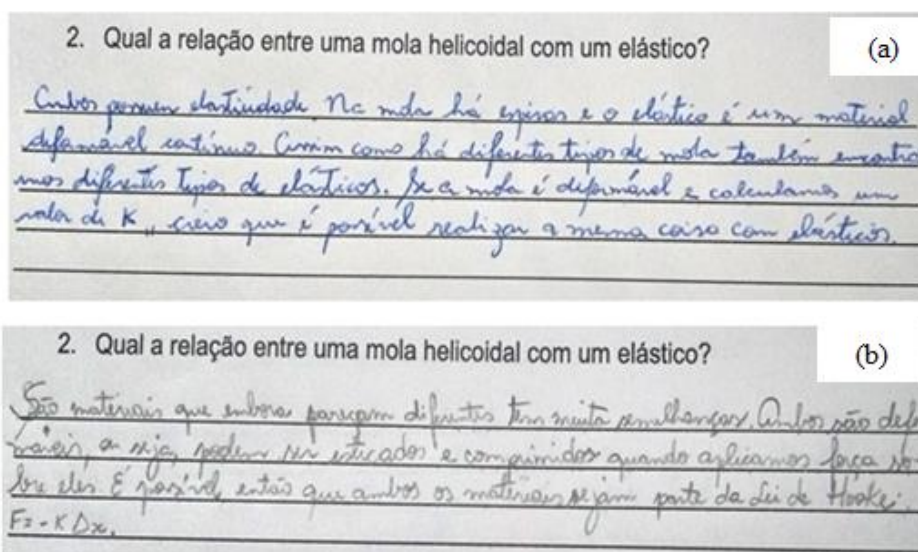 2. Qual a relação entre uma mola helicoidal com um elástico?
(a)
Ambos possuem elasticidade. Na mola há espiras e o elástico é um material
deformável contínuo. Assim como há diferentes tipos de mola também encontra
mos diferentes tipos de elásticos. Se a mola é deformável e calculamos um
valor de K, creio que é possível realizar a mesma coisa com elásticos.
2. Qual a relação entre uma mola helicoidal com um elástico?
(b)
São materiais que embora pareçam diferentes tem muita semelhanças. Ambos são defor
máveis, ou seja, podem ser esticados e comprimidos quando aplicamos força so
bre eles. É possível, então que ambos os materiais sejam parte da Lei de Hooke:
F= -K Δx.